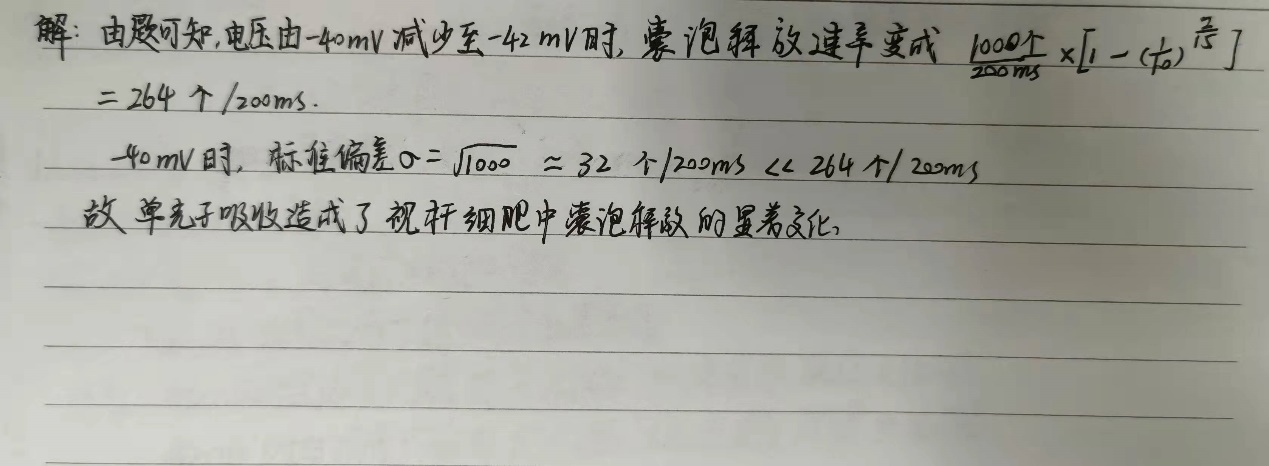 解: 由题可知,电压由-40mV减少至-42mV时, 囊泡释放速率变成 1000个/200ms ×[1-(1/10)^(2/15)]
= 264个/200ms.
-40mV时, 标准偏差σ=√1000 ≈ 32 个/200ms << 264个/200ms
故 单光子吸收造成了视杆细胞中囊泡释放的显著变化.